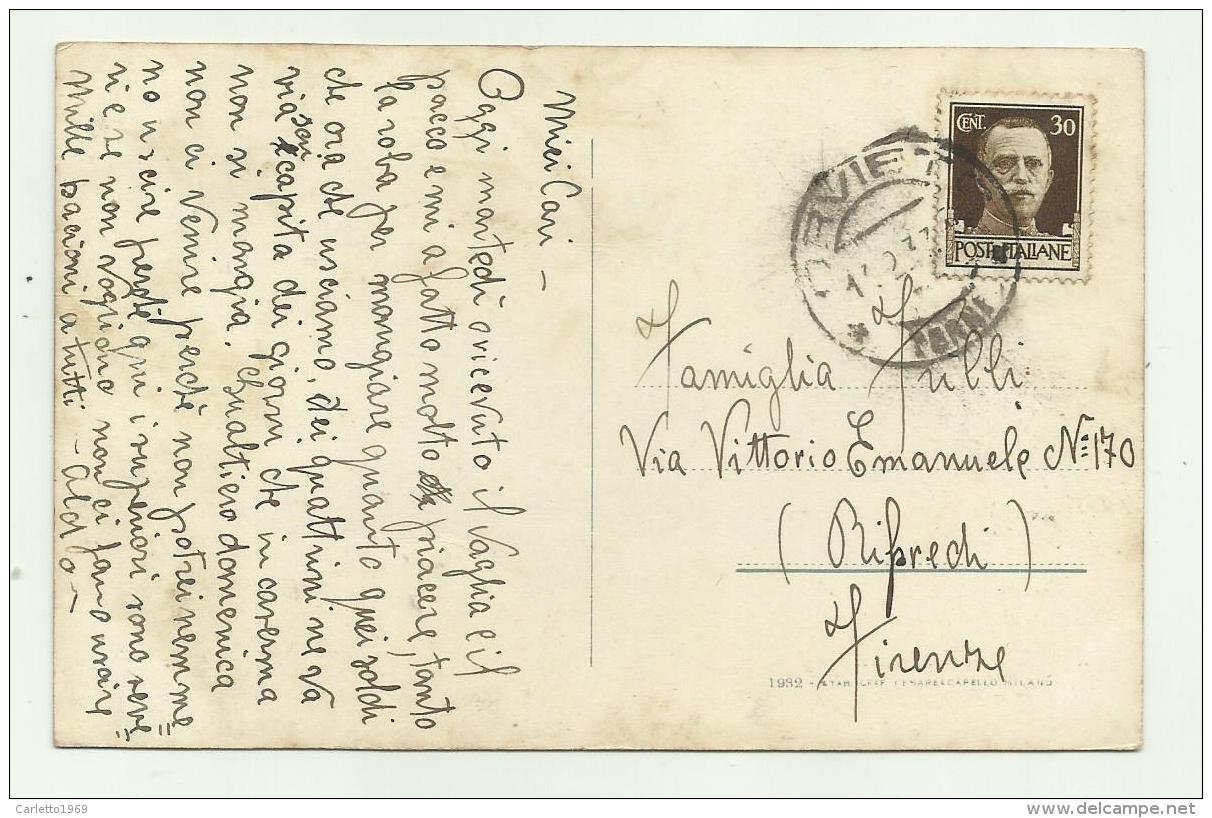 Miei Cari –
Oggi martedì ò ricevuto il Vaglia e il
pacco e mi a fatto molto piacere, tanto
la roba per mangiare quanto quei soldi
che ora che usciamo, dei quattrini ne va
via, capita dei giorni che in caserma
non si mangia. Gualtiero domenica
non ci venire perchè non potrei nemme=
no uscire perchè qui i superiori sono seve=
ri e se non vogliono non ci fano usire
Mille bacioni a tutti – Aldo –
CENT. 30
POSTE ITALIANE
ORVIETO
Famiglia Fulli
Via Vittorio Emanuele N: 170
(Rifredi)
Firenze
1932 - STAB. GRAF. CESARE CAPELLO - MILANO
Carletto1969
delcampe.net